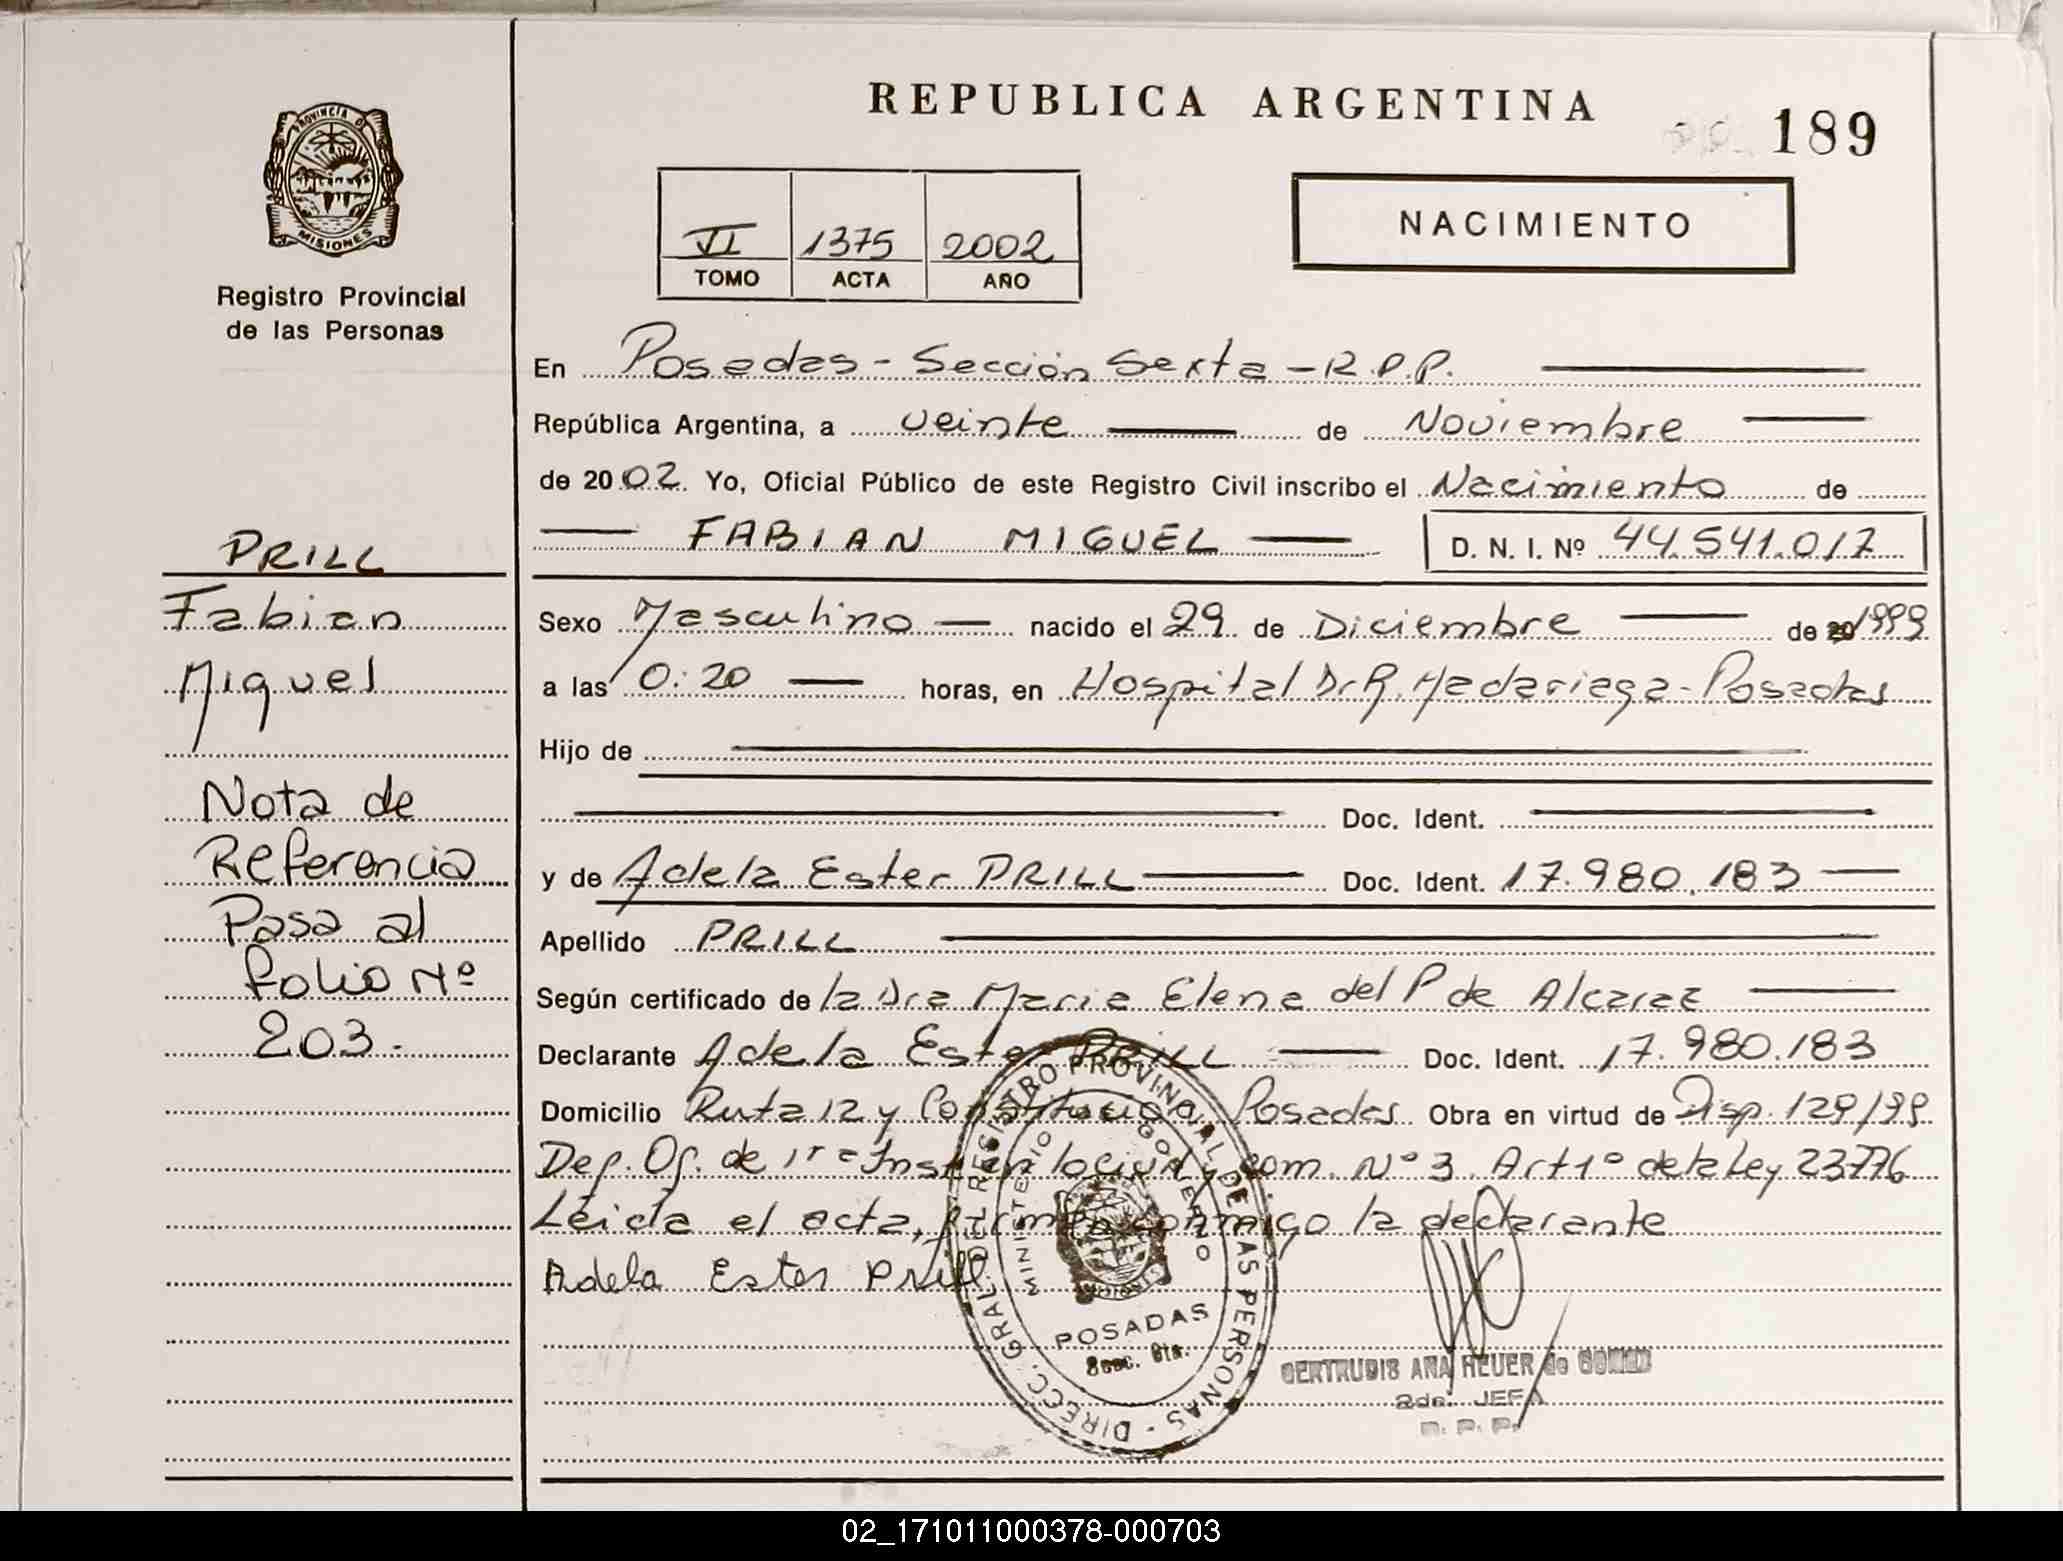 REPUBLICA ARGENTINA
189
PROVINCIA DE
MISIONES
Registro Provincial
de las Personas
VI 1375 2002
TOMO ACTA AÑO
NACIMIENTO
En Posadas - Sección Sexta - R.P.P.
República Argentina, a veinte de Noviembre
de 2002. Yo, Oficial Público de este Registro Civil inscribo el Nacimiento de
FABIAN MIGUEL D. N. I. Nº 44.541.017
PRILL
Fabian
Miguel
Nota de
Referencia
Pasa al
folio Nº
203.
Sexo Masculino nacido el 29 de Diciembre de 1999
a las 0:20 horas, en Hospital Dr R. Madariaga - Posadas
Hijo de
Doc. Ident.
y de Adela Ester PRILL Doc. Ident. 17.980.183
Apellido PRILL
Según certificado de la Dra Maria Elena del P de Alcaraz
Declarante Adela Ester PRILL Doc. Ident. 17.980.183
Domicilio Ruta 12 y Constitución Posadas Obra en virtud de Disp. 129/99
Def. Of. de 1ra Inst en lo Civil y Com. Nº 3. Art 1º de la Ley 23776
Leida el acta, firma conmigo la declarante
Adela Ester Prill
DIRECC. GRAL. DEL REGISTRO PROVINCIAL DE LAS PERSONAS
MINISTERIO GOBIERNO
MISIONES
POSADAS
Secc. 6ta.
GERTRUDIS ANA HEUER de GOMEZ
2da. JEFA
R. P. P.
02_171011000378-000703